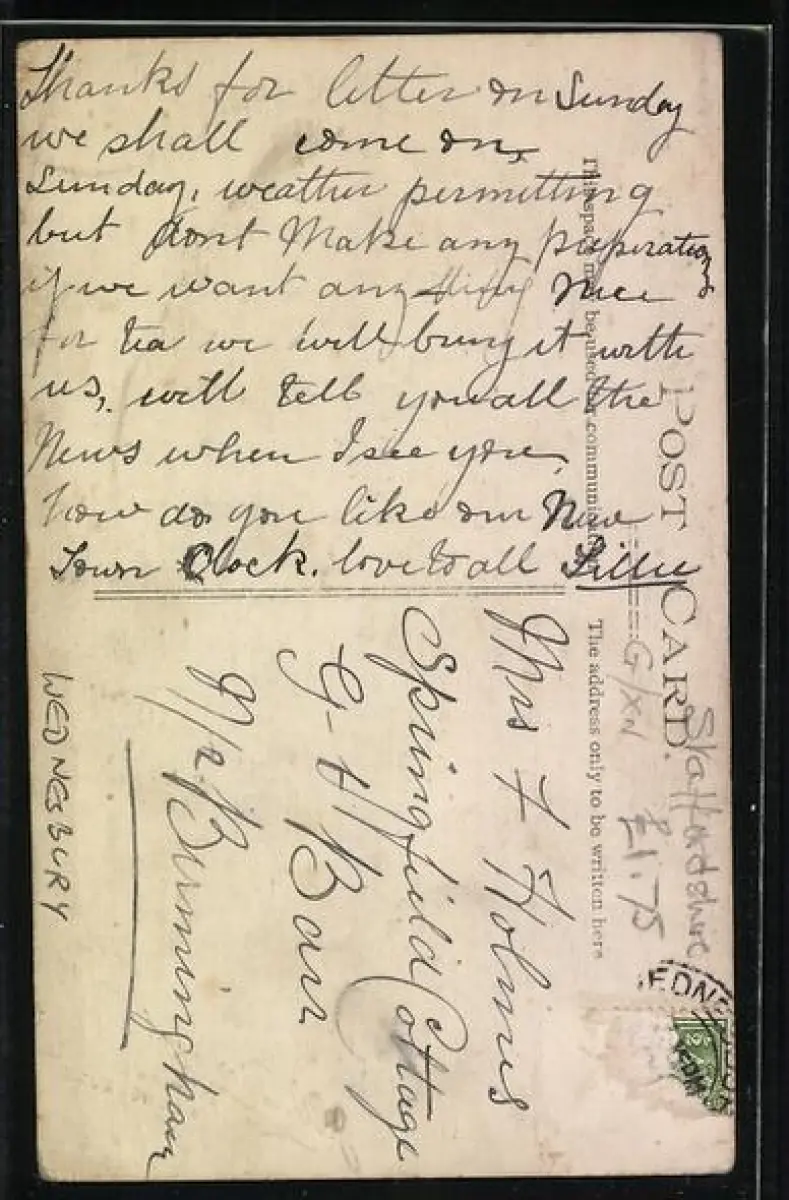 Thanks for letter on Sunday
we shall come on
Sunday, weather permitting
but dont Make any preperations
if we want anything Nice
for tea we will bring it with
us, will tell you all the
News when I see you,
how do you like our New
Town Clock. love to all Lillie
POST CARD.
This space may be used for communication
The address only to be written here
Mrs F Holmes
Springfield Cottage
Gt Barr
Nr Birmingham
WEDNESBURY
Staffordshire
£1.75
EDNE